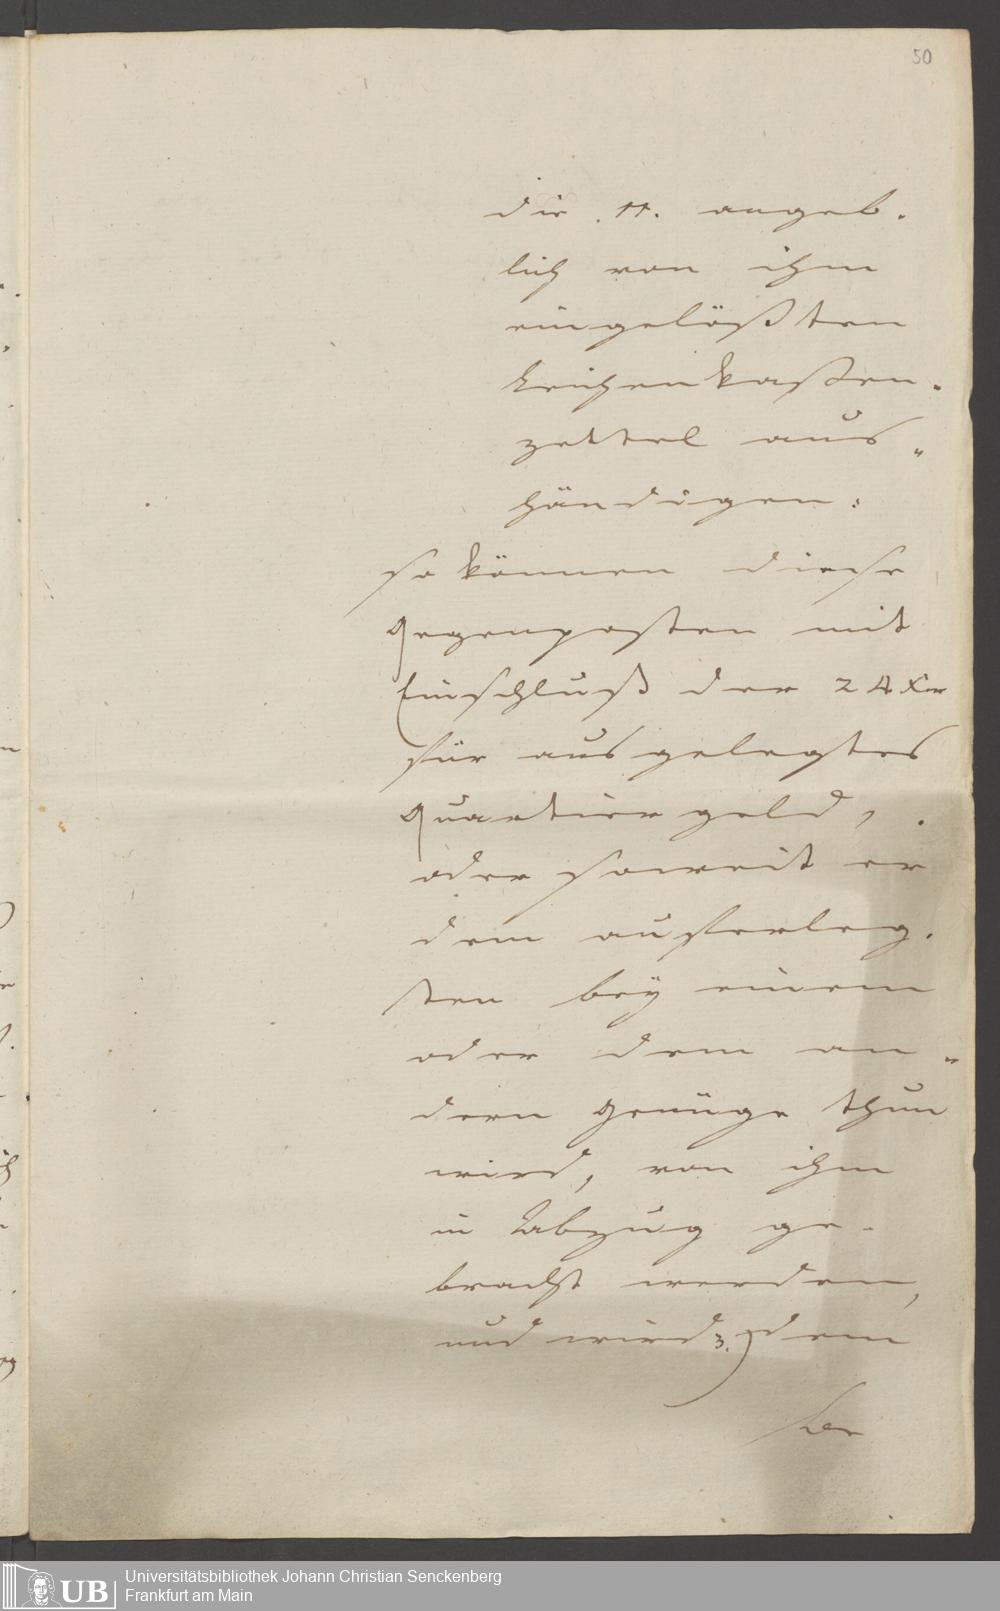 50
die 11. angeb-
lich von ihm
eingelößten
Leichenkaßen-
zettel aus-
händigen:
so können diese
Gegenposten mit
Einschluß der 24 Xer
für ausgelegtes
Quartiergeld,
oder soweit er
dem auferleg-
ten bey einem
oder dem an-
dern Genüge thun
wird, von ihm
in Abzug ge-
bracht werden,
und wird 3.) dem
Universitätsbibliothek Johann Christian Senckenberg
Frankfurt am Main
UB